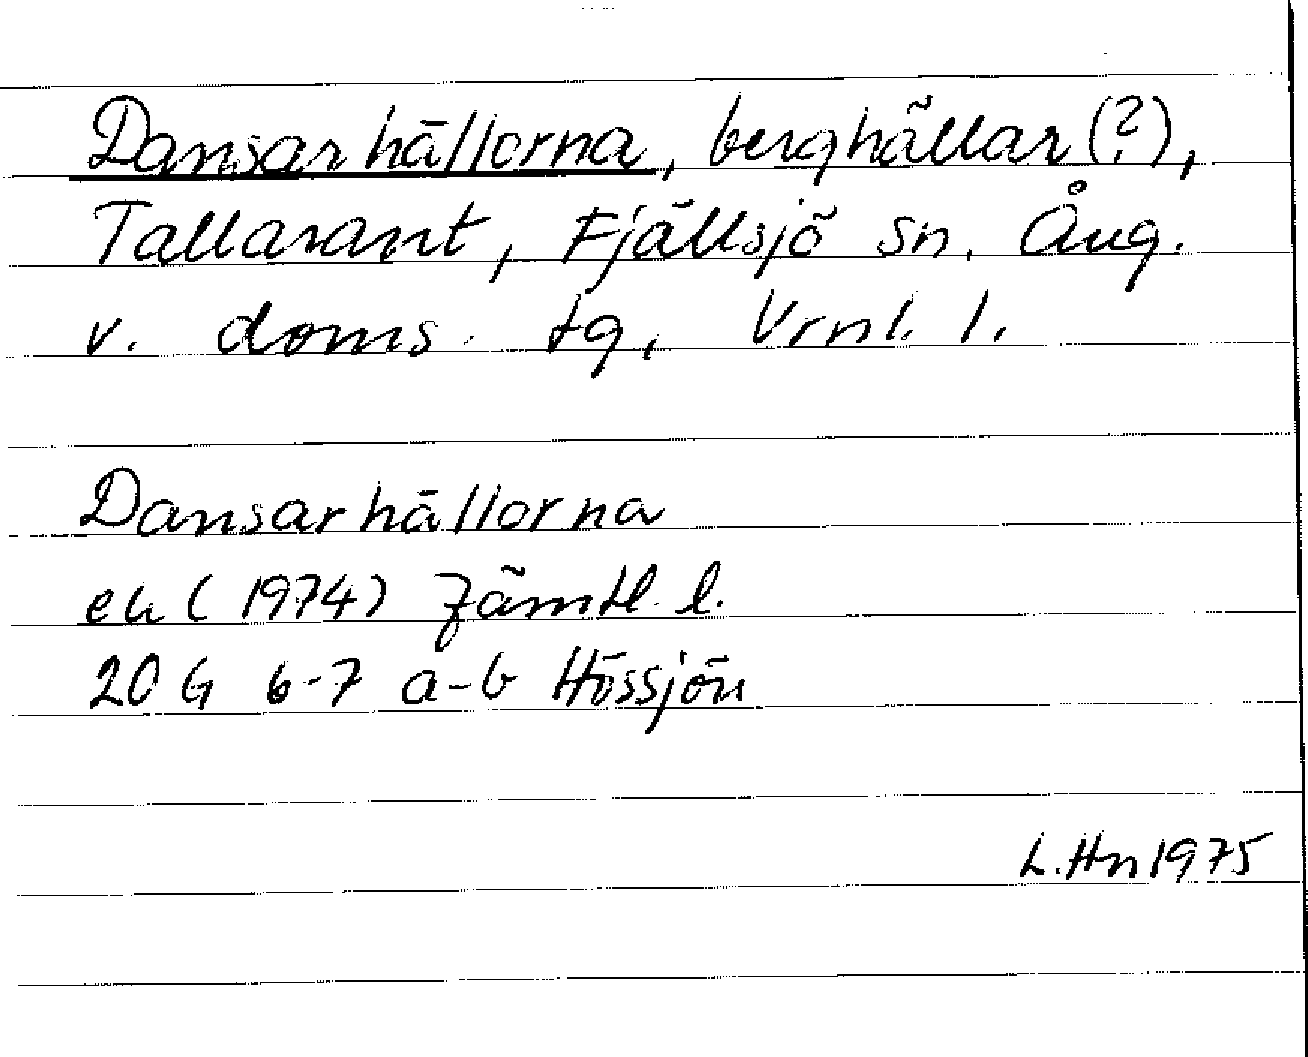 Dansarhällorna, berghällar (?),
Tallarant, Fjällsjö sn, Ång.
v. doms. tg, Vrnl. l.
Dansarhällorna
ek (1974) Jämtl. l.
20 G 6-7 a-b Hössjön
L. Hn 1975